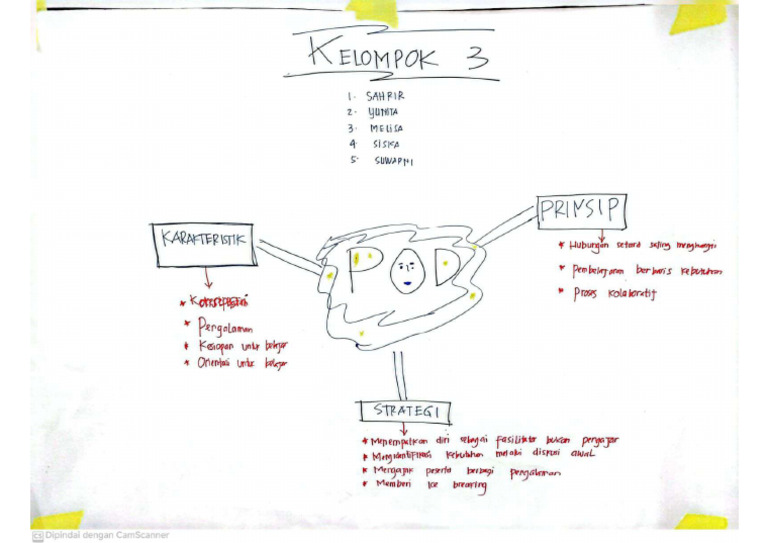 KELOMPOK 3
1. SAHRIR
2. YUNITA
3. MELISA
4. SISKA
5. SUWARNI
KARAKTERISTIK
*
* Pengalaman
* Kesiapan untuk belajar
* Orientasi untuk belajar
POD
PRINSIP
* Hubungan setara saling menghargai
* Pembelajaran berbasis kebutuhan
* Proses kolaboratif
STRATEGI
* Menempatkan diri sebagai fasilitator bukan pengajar
* Mengidentifikasi kebutuhan melalui diskusi awal
* Mengajak peserta berbagi pengalaman
* Memberi ice breaking
CS Dipindai dengan CamScanner